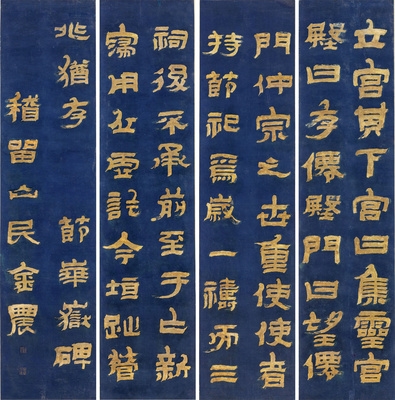 立宮其下宮曰集靈宮
壂曰存僊壂門曰望僊
門仲宗之世重使使者
持節祀焉歲一禱而三
祠後不承前至于亡新
寖用丘虛訖今垣趾營
兆猶存 節華嶽碑
稽留山民金農